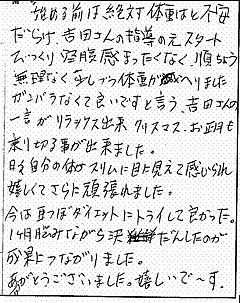 始める前は絶対体重はと不安
だらけ、吉田さんの指導の元スタート
びっくり 空腹感まったくなく、順ちょう
無理なく 少しづつ体重がへりました
ガンバラなくて良いですと言う、吉田さんの
一言がリラックス出来 クリスマス、お正月も
乗り切る事が出来ました。
日々自分の体がスリムに目に見えて感じられ
嬉しくてさらに頑張れました。
今は耳つぼダイエットにトライして良かった。
1ヶ月悩みながら決だんしたのが
成果につながりました。
ありがとうございました。嬉しいで〜す。